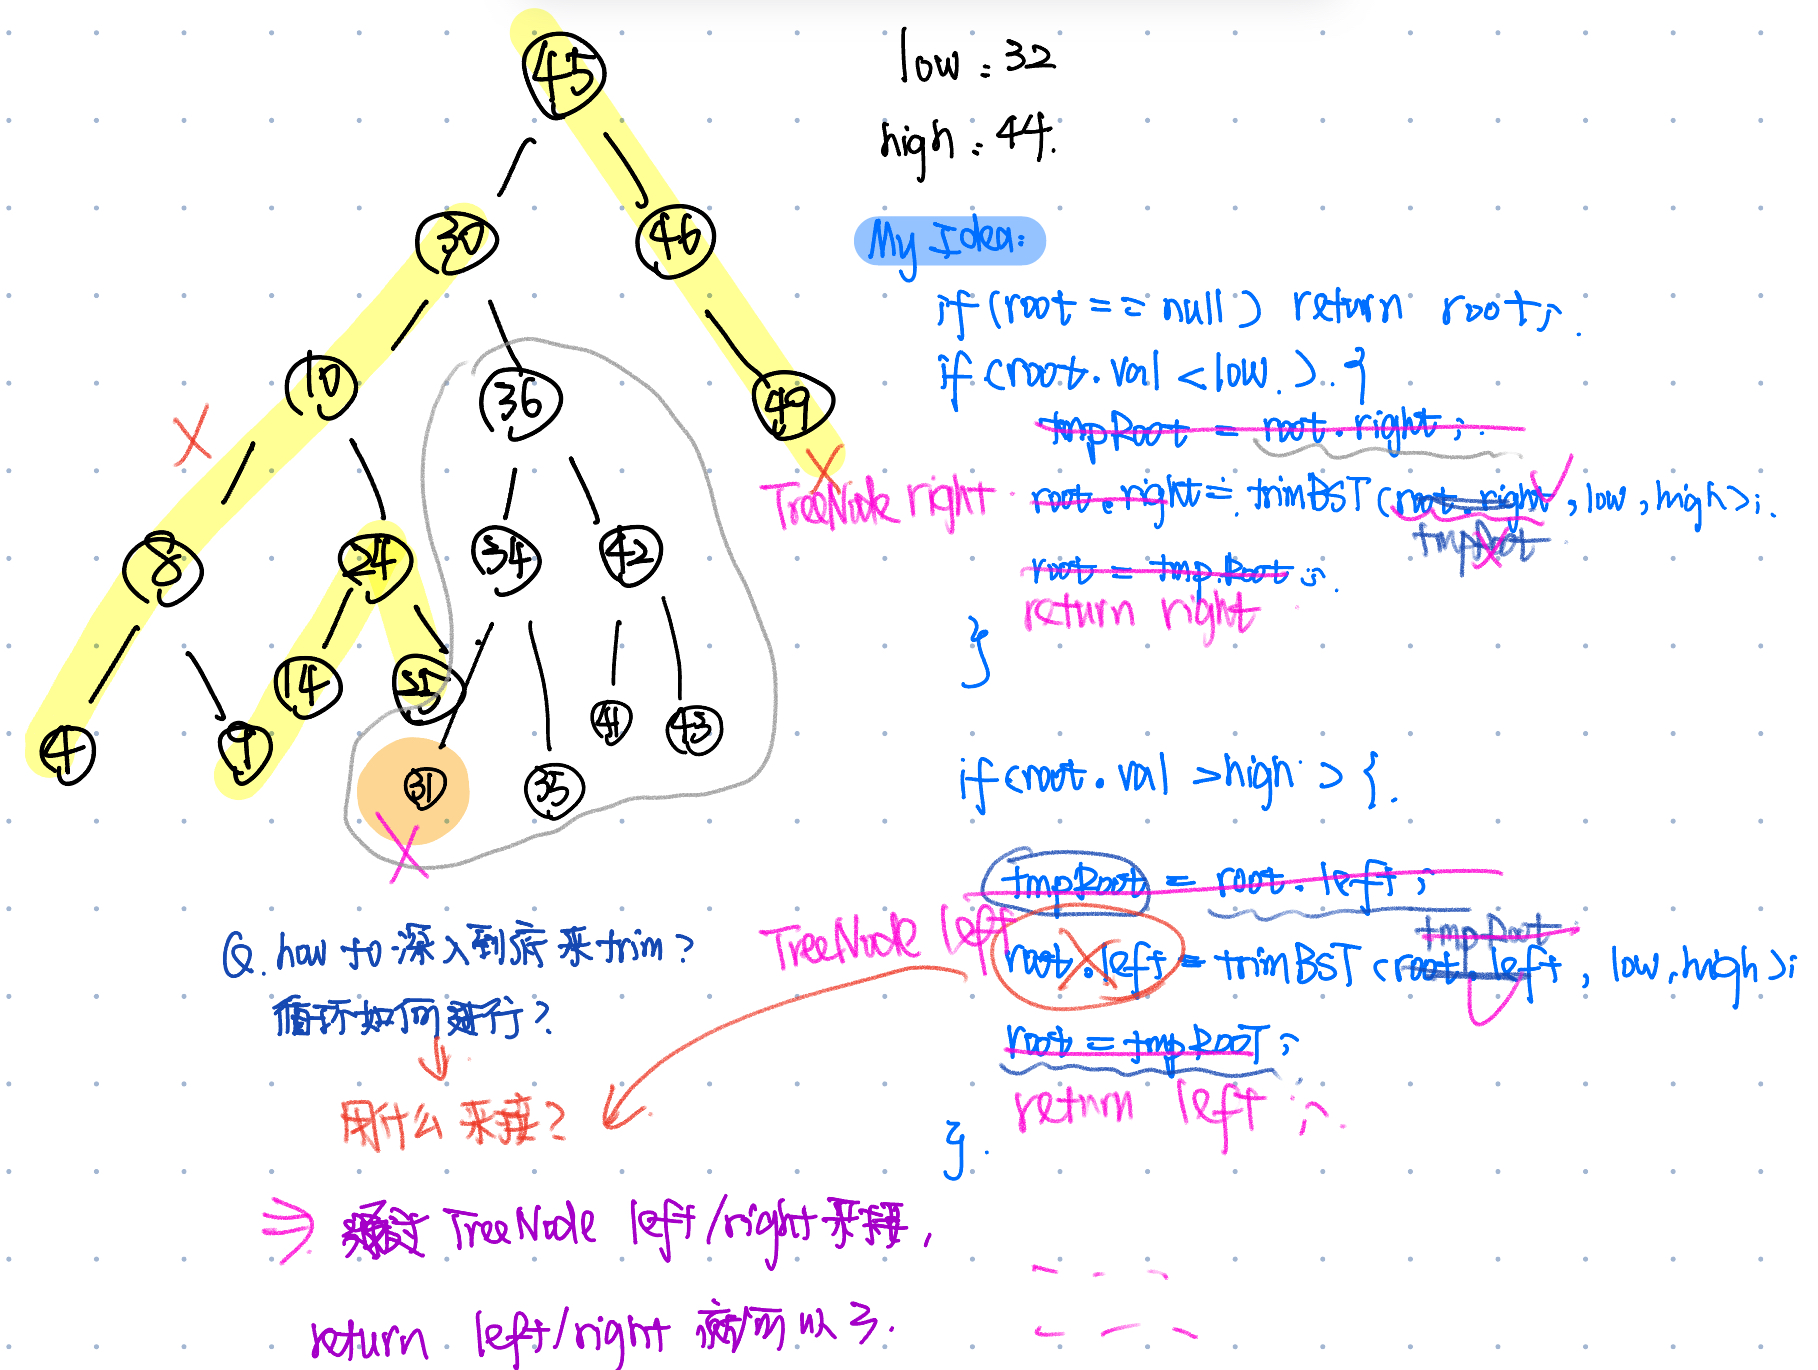 45
30
46
10
36
49
8
24
34
42
14
4
9
31
35
41
43
low : 32
high : 44.
My Idea:
if (root == null) return root;
if (root.val < low) {
tmpRoot = root.right;
TreeNode right root.right = trimBST (root.right, low, high);
tmpRoot
root = tmpRoot;
return right
}
if (root.val > high) {
tmpRoot = root.left;
tmpRoot
TreeNode left root.left = trimBST (root.left, low, high);
root = tmpRoot;
return left;
}
Q. how to 深入到底来 trim?
循环如何进行?
用什么来接?
⇒ 通过 TreeNode left/right 来接,
return left/right 就可以了.